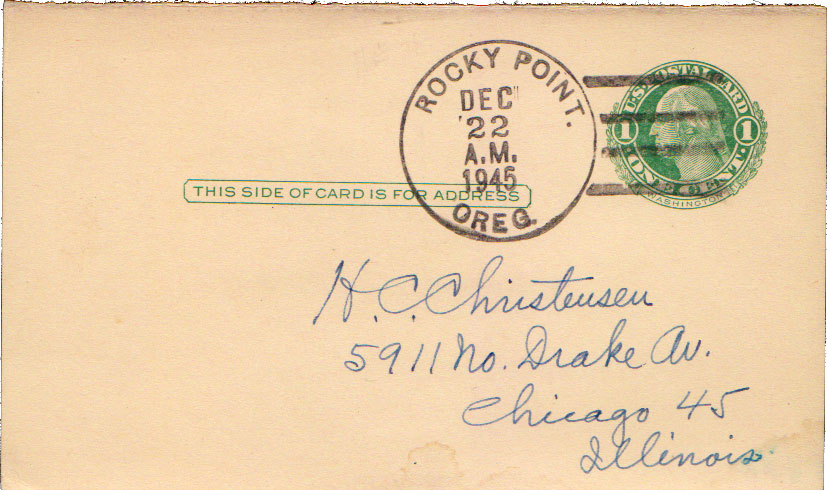 ROCKY POINT.
DEC
'22
A.M.
1945
OREG.
U.S. POSTAL CARD
1 1
ONE CENT.
WASHINGTON
THIS SIDE OF CARD IS FOR ADDRESS
H. C. Christensen
5911 No. Drake Av.
Chicago 45
Illinois